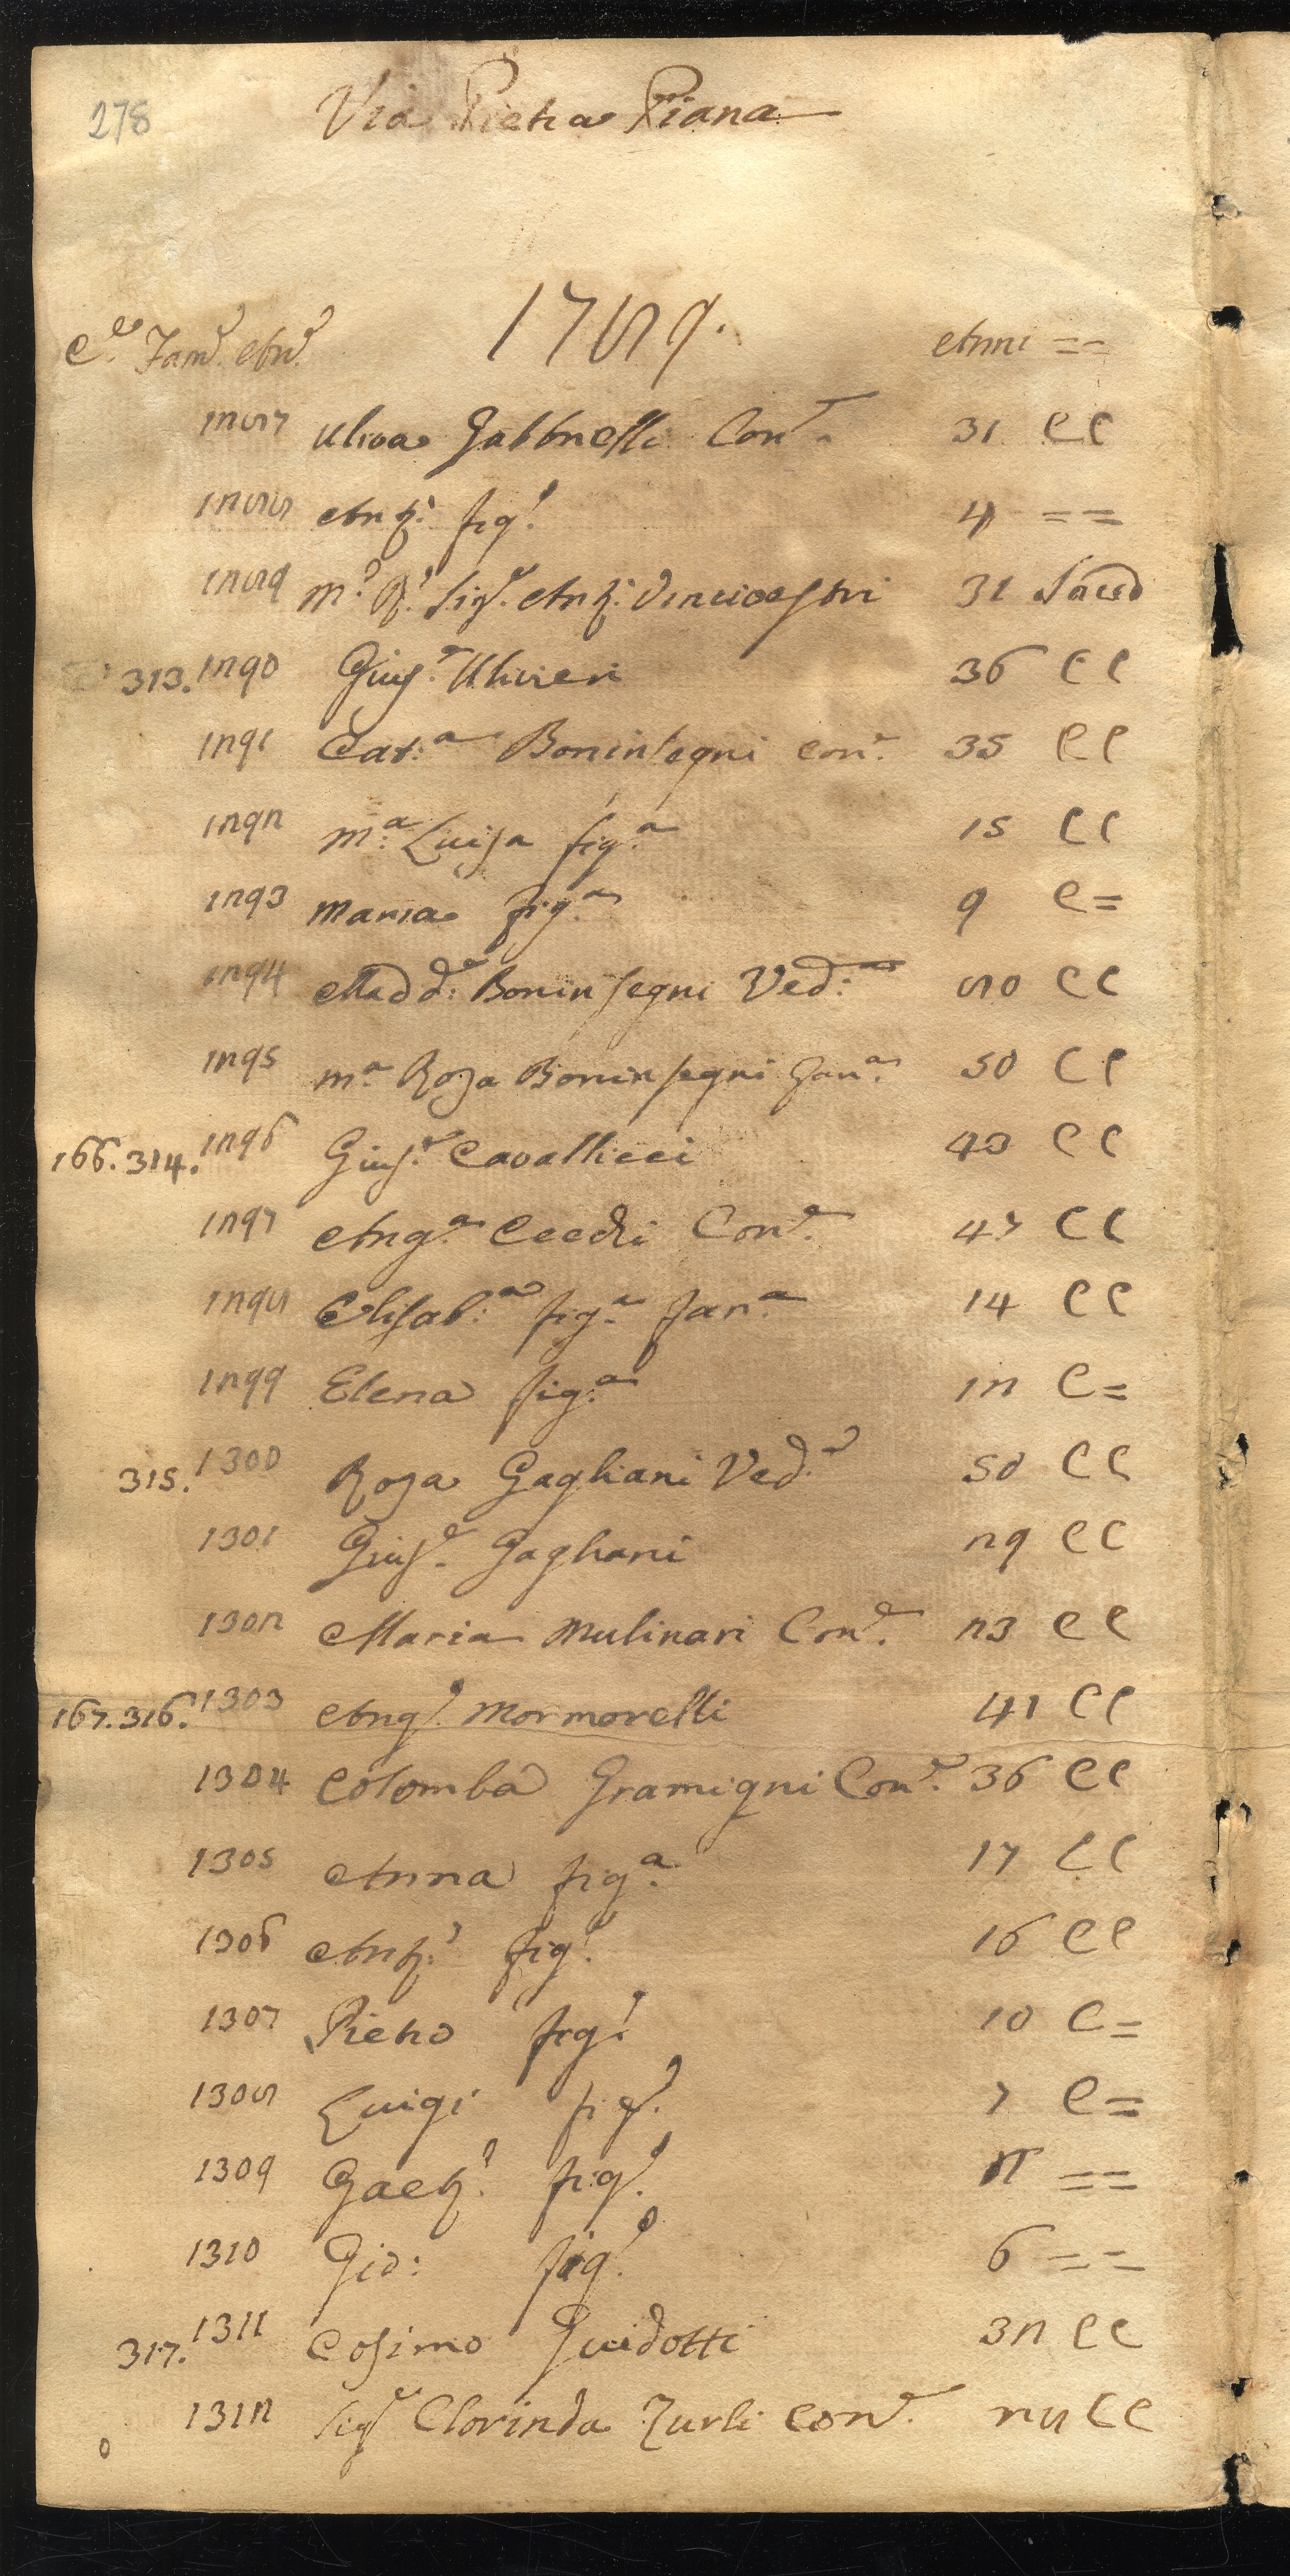 278
Via Pietra Piana
1789.
C.e Fam.e An.e Anni ==
1287 Uliva Gabbrielli Con.e 31 CC
1288 Ant.o fig.o 4 ==
1289 M.o R.o Sig.e Ant.o Vincivestri 31 Sacerd
313. 1290 Gius.e Ulivieri 36 CC
1291 Cat.a Boninsegni Con.e 35 CC
1292 M.a Luisa fig.a 15 CC
1293 Maria fig.a 9 C=
1294 Madd.a Boninsegni Ved.a 80 CC
1295 M.a Rosa Boninsegni Fan.a 50 CC
166. 314. 1296 Gius.e Cavallicci 43 CC
1297 Ang.a Cecchi Con.e 47 CC
1298 Elisab.a fig.a Fan.a 14 CC
1299 Elena fig.a 12 C=
315. 1300 Rosa Gagliani Ved.a 50 CC
1301 Gius.e Gagliani 29 CC
1302 Maria Mulinari Con.e 23 CC
167. 316. 1303 Ang.o Mormorelli 41 CC
1304 Colomba Gramigni Con.e 36 CC
1305 Anna fig.a 17 CC
1306 Ant.o fig.o 16 CC
1307 Pietro fig.o 10 C=
1308 Luigi fig.o 7 C=
1309 Gaet.o fig.o ==
1310 Gio: fig.o 6 ==
317. 1311 Cosimo Guidotti 32 CC
1312 Sig.a Clorinda Turli Con.e 28 CC